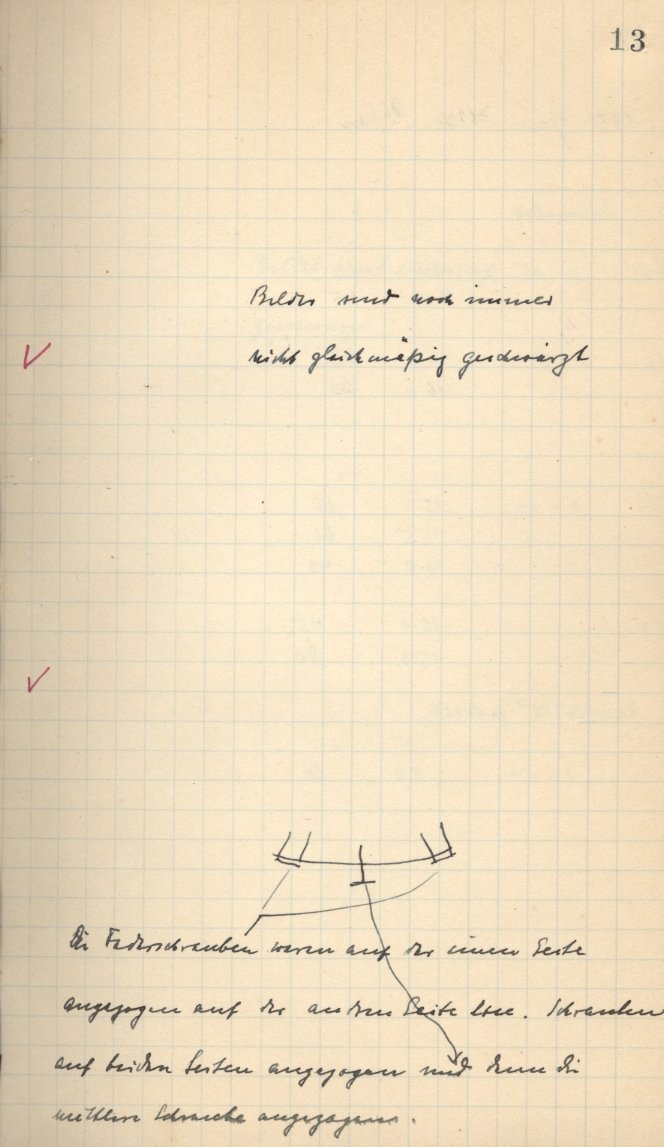 13
Bilder sind noch immer
nicht gleichmäßig geschwärzt
Die Federschrauben waren auf der einen Seite
angezogen auf der andren Seite lose. Schrauben
auf beiden Seiten angezogen und dann die
mittlere Schraube angezogen.